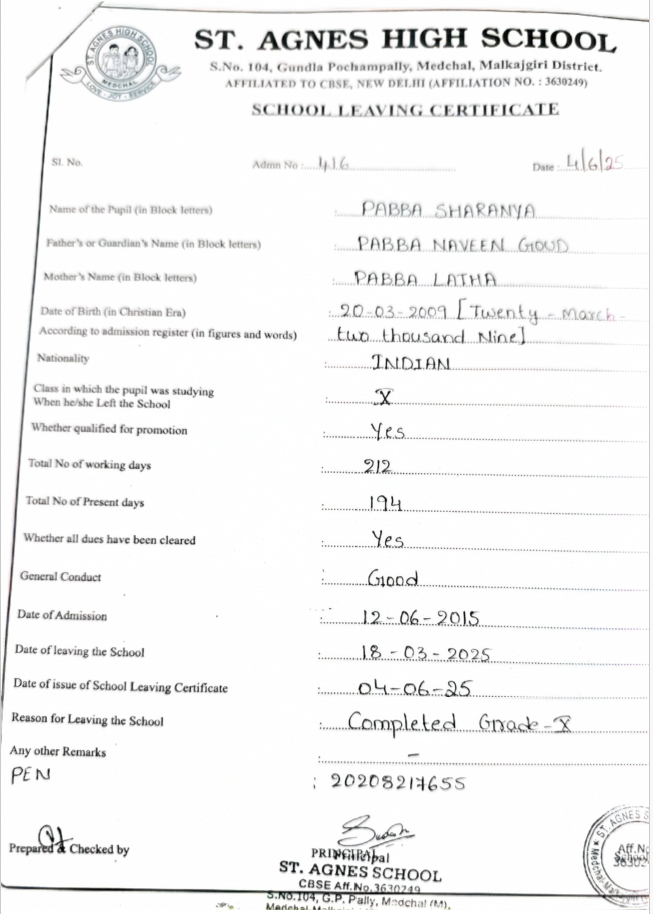 ST. AGNES HIGH SCHOOL
MEDCHAL
LOVE - JOY - SERVICE
ST. AGNES HIGH SCHOOL
S.No. 104, Gundla Pochampally, Medchal, Malkajgiri District.
AFFILIATED TO CBSE, NEW DELHI (AFFILIATION NO. : 3630249)
SCHOOL LEAVING CERTIFICATE
Sl. No. Admn No : 416 Date : 4/6/25
Name of the Pupil (in Block letters) : PABBA SHARANYA
Father's or Guardian's Name (in Block letters) : PABBA NAVEEN GOUD
Mother's Name (in Block letters) : PABBA LATHA
Date of Birth (in Christian Era) : 20-03-2009 [Twenty - March -
According to admission register (in figures and words) two thousand Nine]
Nationality : INDIAN
Class in which the pupil was studying
When he/she Left the School : X
Whether qualified for promotion : Yes
Total No of working days : 212
Total No of Present days : 194
Whether all dues have been cleared : Yes
General Conduct : Good
Date of Admission : 12-06-2015
Date of leaving the School : 18-03-2025
Date of issue of School Leaving Certificate : 04-06-25
Reason for Leaving the School : Completed Grade-X
Any other Remarks : -
PEN : 20208217655
Prepared & Checked by
PRINCIPAL
ST. AGNES SCHOOL
CBSE Aff.No.3630249
S.No.104, G.P. Pally, Medchal (M),